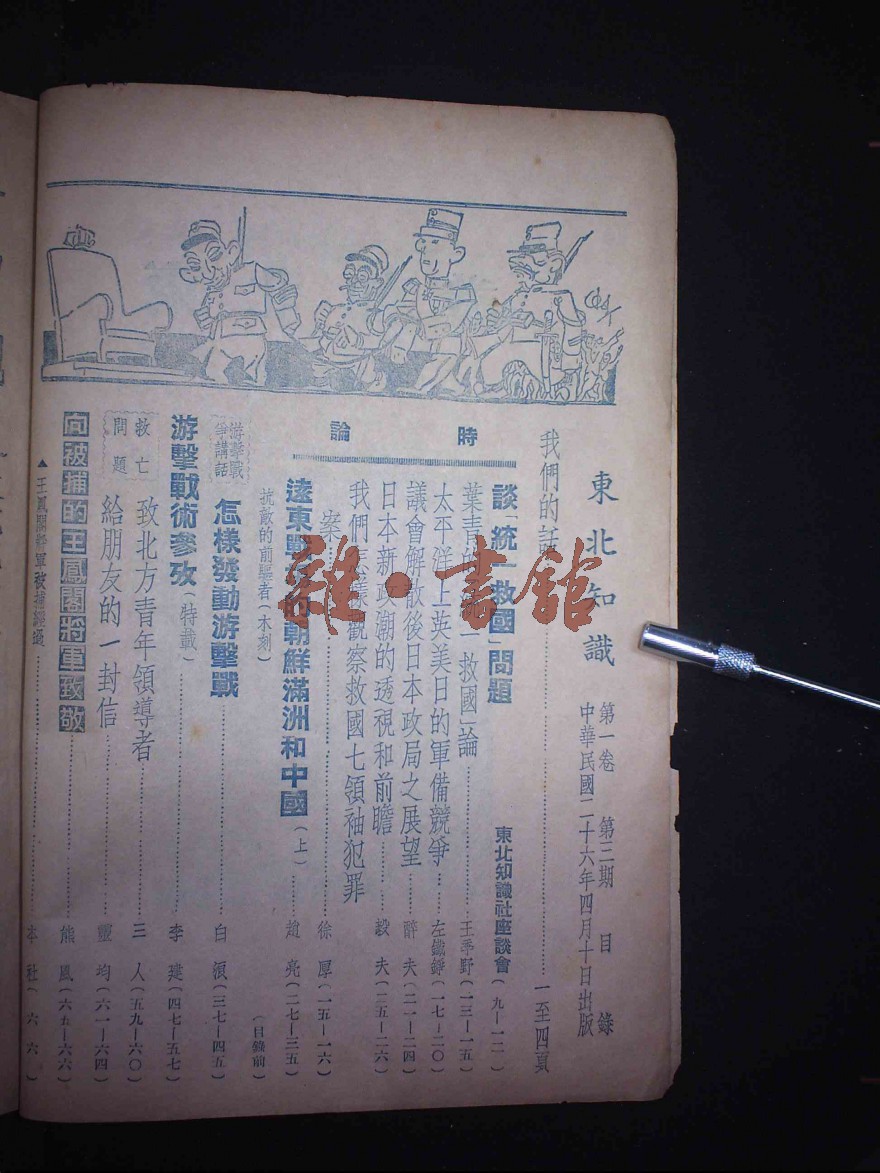 東北知識
第一卷 第三期 目錄
中華民國二十六年四月十日出版
我們的話 一至四頁
時論
談「統一救國」問題 東北知識社座談會(九—一二)
葉青的 一救國」論 王季野(一三—一五)
太平洋上英美日的軍備競爭 左鐵錚(一七—二〇)
議會解散後日本政局之展望 辭夫(二一—二四)
日本新 潮的透視和前瞻 毅夫(二五—二六)
我們怎樣觀察救國七領袖犯罪
案 徐厚(一五—一六)
遠東戰 的朝鮮滿洲和中國(上) 趙亮(二七—三五)
抗敵的前驅者(木刻) (目錄前)
游擊戰
爭講話
怎樣發動游擊戰 白 (三七—四五)
游擊戰術參攷(特載) 李建(四七—五七)
救亡
問題
致北方青年領導者 三人(五九—六〇)
給朋友的一封信 靈均(六一—六四)
向被捕的王鳳閣將軍致敬 熊鳳(六五—六六)
▲王鳳閣將軍被捕經過 本社(六六)
雜·書館